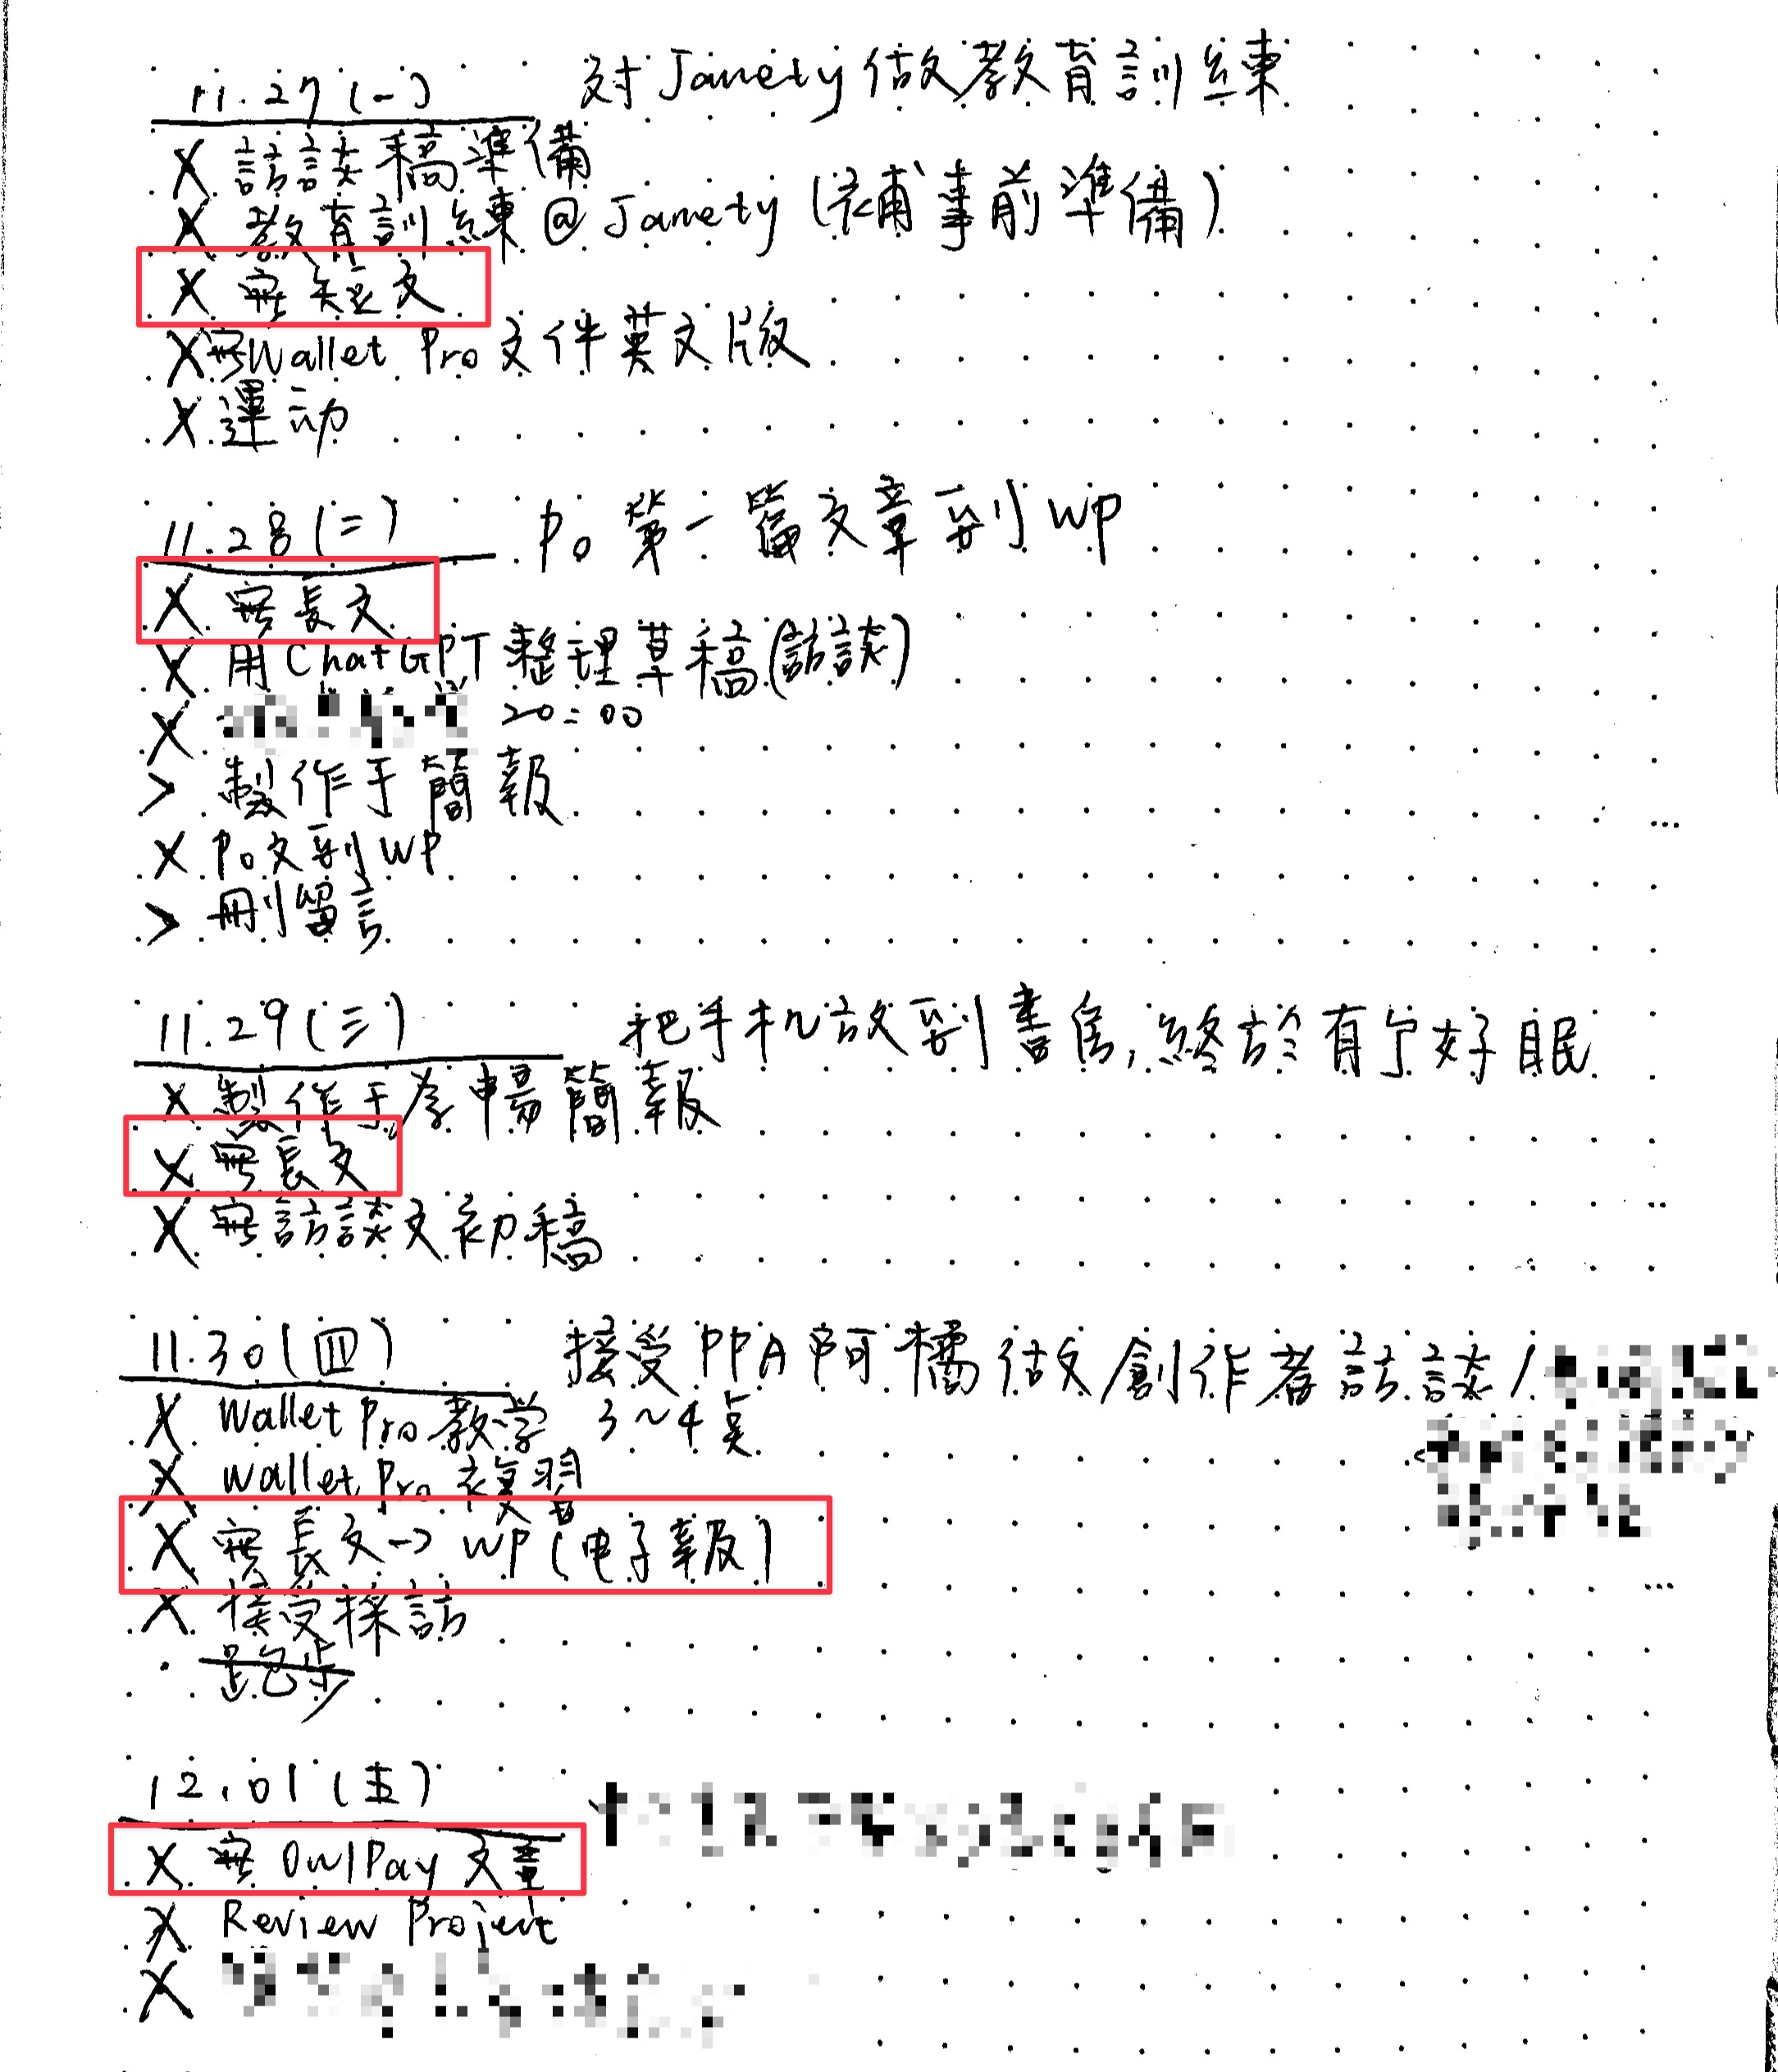 11.27(一) 對Janety做教育訓練
X 訪談稿準備
X 教育訓練@Janety(補事前準備)
X 寫短文
X 寫Wallet Pro文件英文版
X 運动
11.28(二) Po第一篇文章到WP
X 寫長文
X 用ChatGPT整理草稿(訪談)
X 20:00
> 製作于簡報
X Po文到WP
> 刪留言
11.29(三) 把手机放到書房,終於有了好眠
X 製作于孝暢簡報
X 寫長文
X 寫訪談文初稿
11.30(四) 接受PPA阿橘做創作者訪談/
X Wallet Pro教学 3~4
X Wallet Pro複習
X 寫長文→WP(电子報)
X 接受採訪
· 跑步
12.01(五)
X 寫OwlPay文章
X Review Project
X